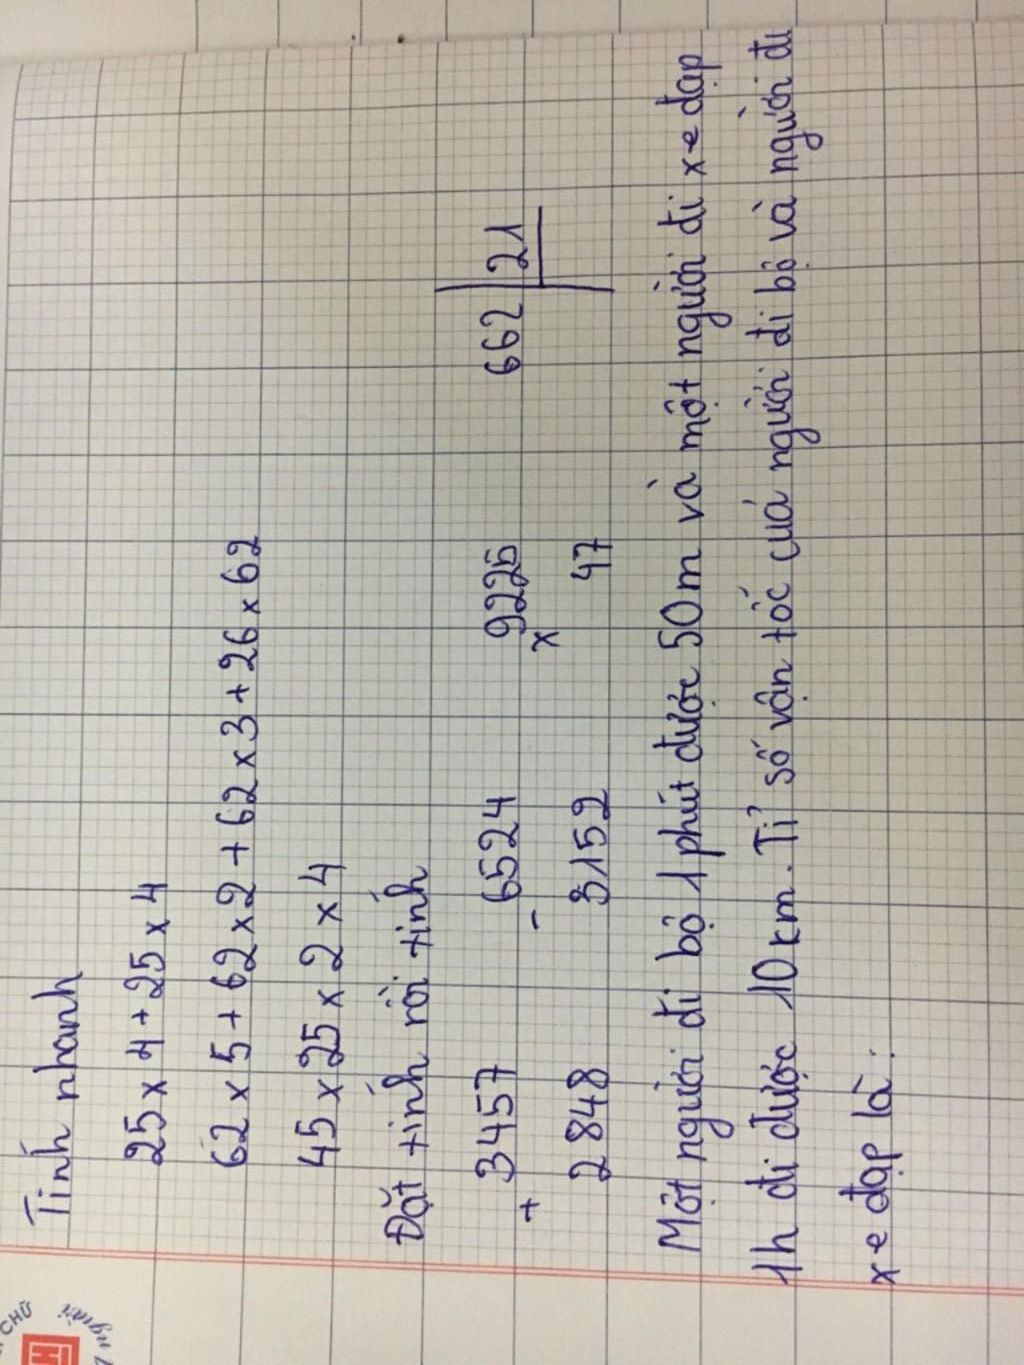 Tính nhanh
25 x 4 + 25 x 4
62 x 5 + 62 x 2 + 62 x 3 + 26 x 62
45 x 25 x 2 x 4
Đặt tính rồi tính
3457 6524 9225 662 21
+ - x
2848 3152 47
Một người đi bộ 1 phút được 50m và một người đi xe đạp
1h đi được 10km. Tỉ số vận tốc của người đi bộ và người đi
xe đạp là:
CHỮ
người